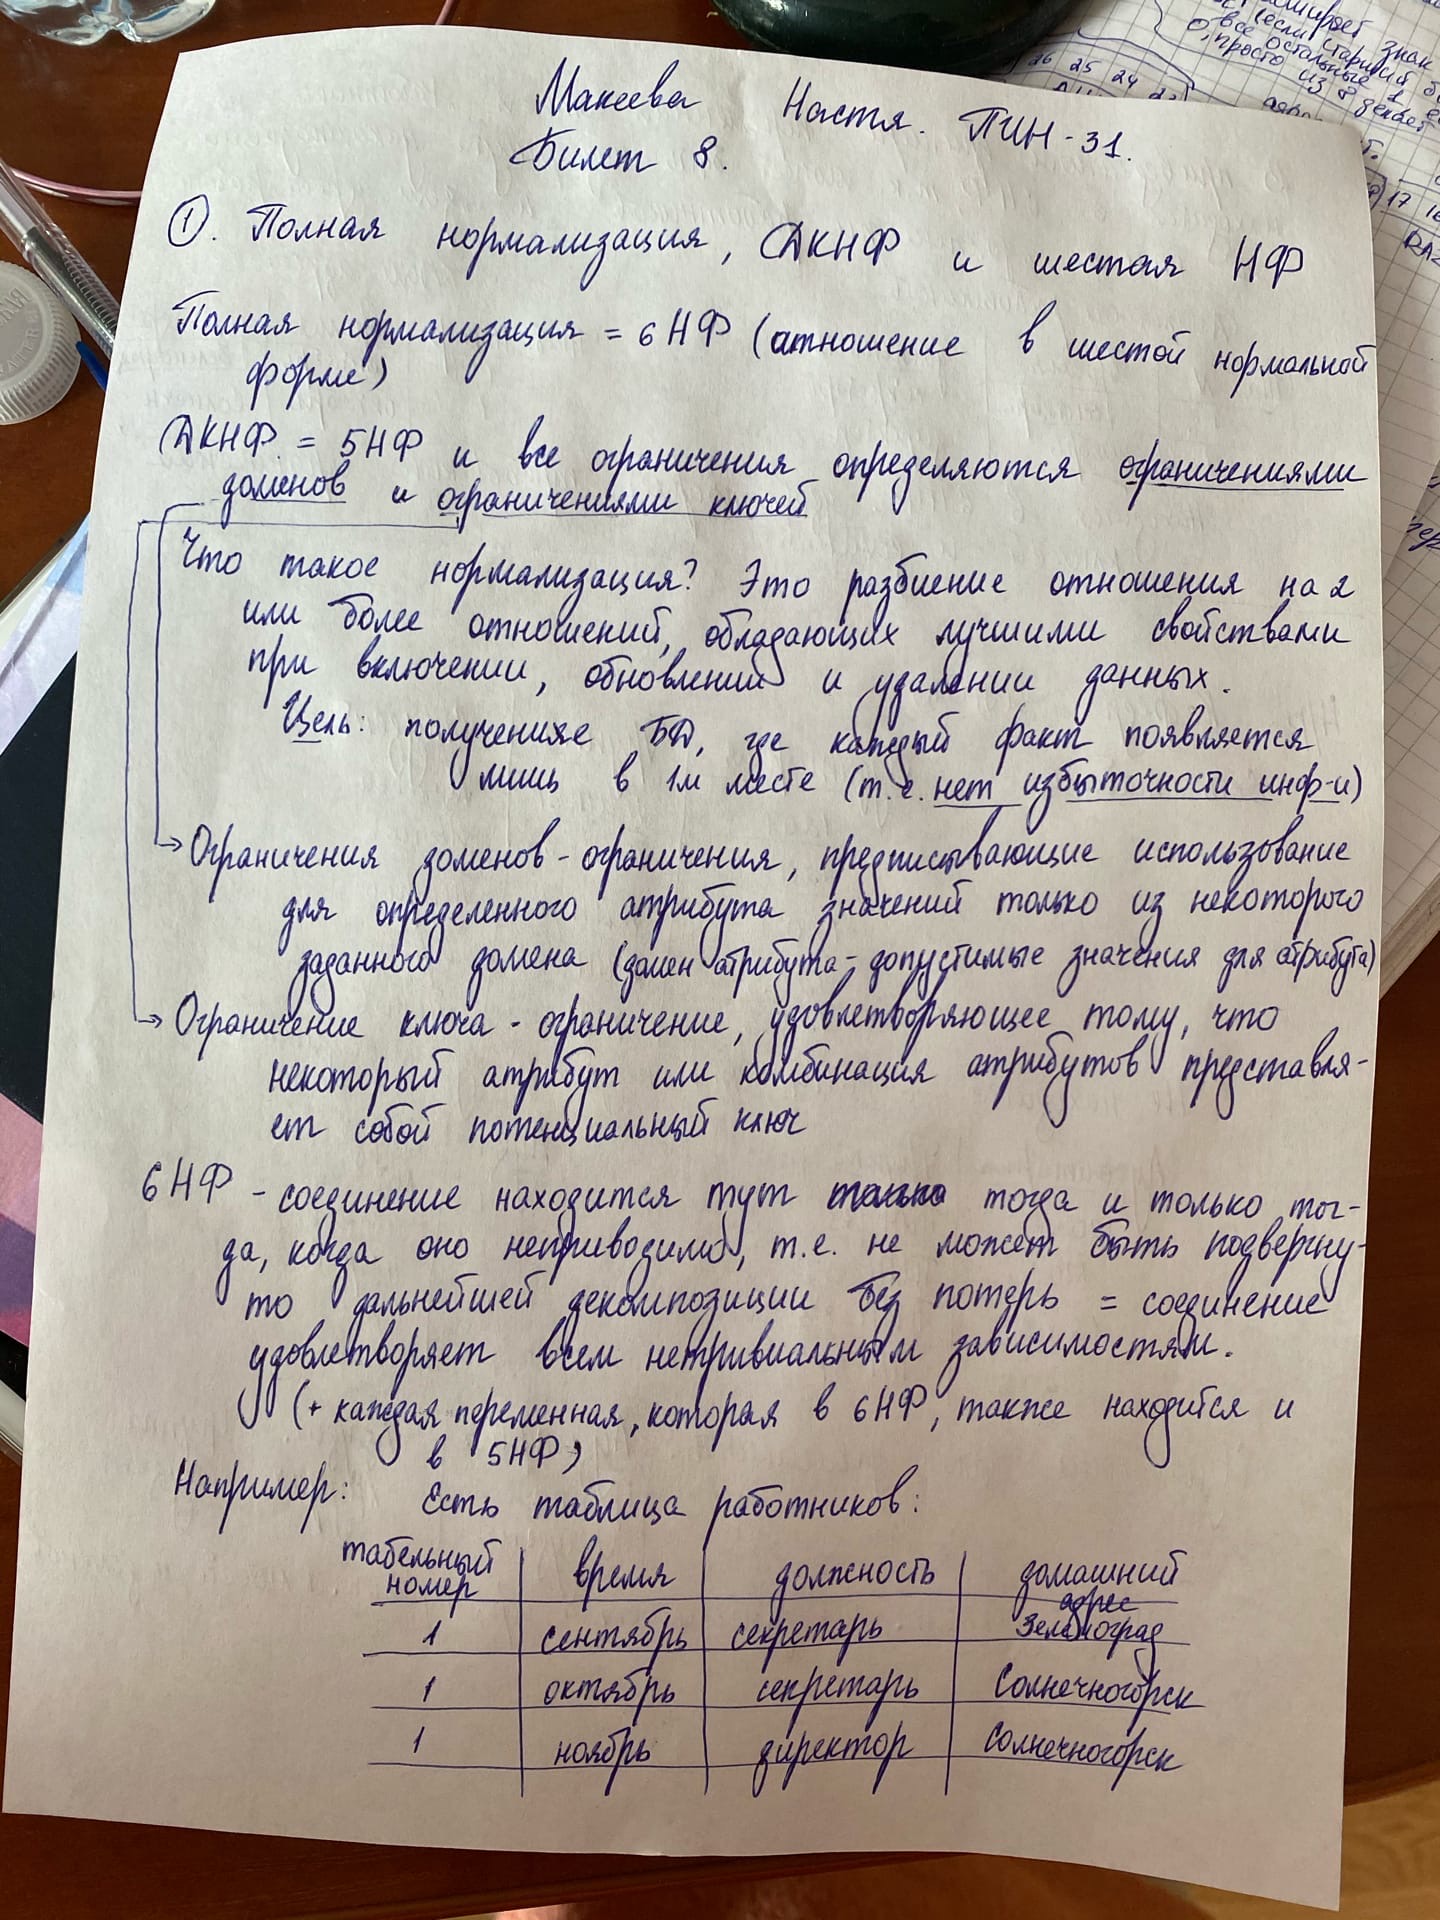 Макеева Настя. ПИН-31.
Билет 8.
①. Полная нормализация, ДКНФ и шестая НФ
Полная нормализация = 6НФ (отношение в шестой нормальной
форме)
ДКНФ = 5НФ и все ограничения определяются ограничениями
доменов и ограничениями ключей
Что такое нормализация? Это разбиение отношения на 2
или более отношений, обладающих лучшими свойствами
при включении, обновлении и удалении данных.
Цель: получение БД, где каждый факт появляется
лишь в 1м месте (т.е. нет избыточности инф-и)
Ограничения доменов - ограничения, предписывающие использование
для определенного атрибута значений только из некоторого
заданного домена (домен атрибута - допустимые значения для атрибута)
Ограничение ключа - ограничение, удовлетворяющее тому, что
некоторый атрибут или комбинация атрибутов представля-
ет собой потенциальный ключ
6НФ - соединение находится тут тогда и только тог-
да, когда оно неприводимо, т.е. не может быть подвергну-
то дальнейшей декомпозиции без потерь = соединение
удовлетворяет всем нетривиальным зависимостям.
(+ каждая переменная, которая в 6НФ, также находится и
в 5НФ)
Например: Есть таблица работников:
табельный номер время должность домашний адрес
1 сентябрь секретарь Зеленоград
1 октябрь секретарь Солнечногорск
1 ноябрь директор Солнечногорск
26 25 24
знак
если старший
все остальные 1
0, просто из
17